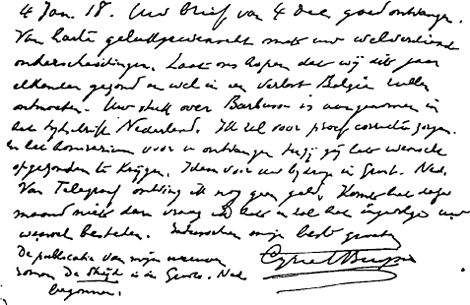 4 Jan. 18. Uw brief van 4 Dec. goed ontvangen.
Van harte gelukgewenscht met uw welverdiende
onderscheidingen. Laat ons hopen dat wij dit jaar
elkander gezond en wel in een verlost België zullen
ontmoeten. Uw stuk over Barbusse is aangenomen in
het tijdschrift Nederland. Ik zal voor proef correctie zorgen.
en het honorarium voor u ontvangen tenzij gij het wenscht
opgezonden te krijgen. Idem voor uw bijdrage in Groot Ned.
Van Telegraaf ontving ik nog geen geld. Komt het deze
maand niet dan vraag ik het en zal het ingevolge uw
wensch besteden. Intusschen mijn beste groeten
De publicatie van mijn nieuwen Cyriel Buysse
roman De Strijd is in Groot Ned
begonnen.